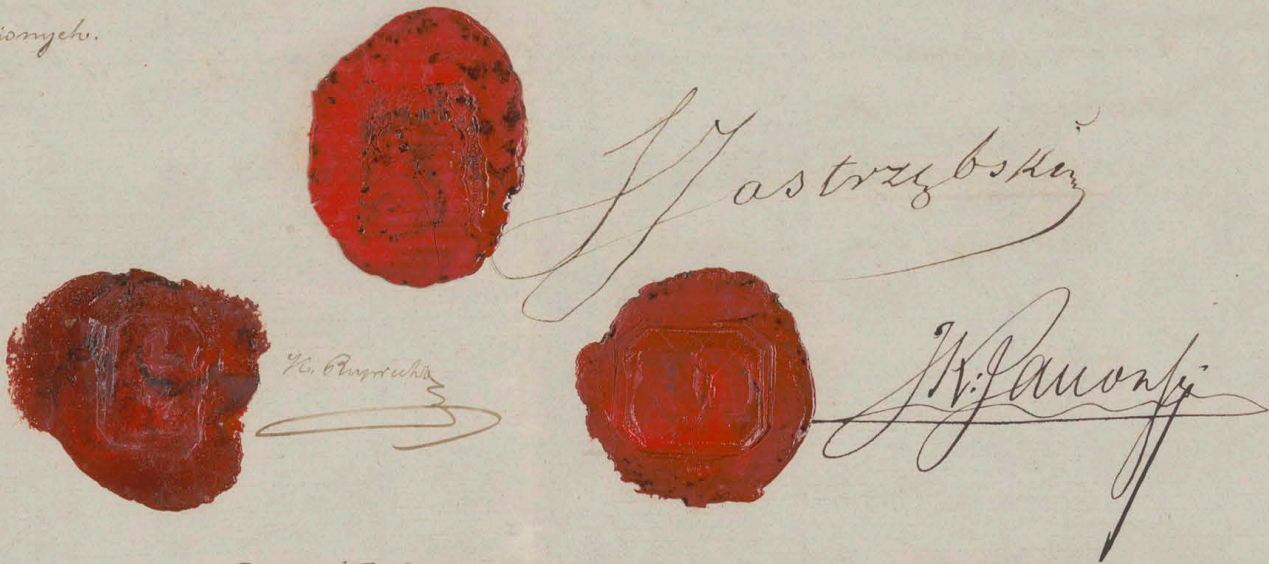 ionych.
J Jastrzębski
K. Ruprecht
JK: Janowski